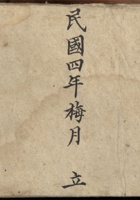 民國四年梅月 立